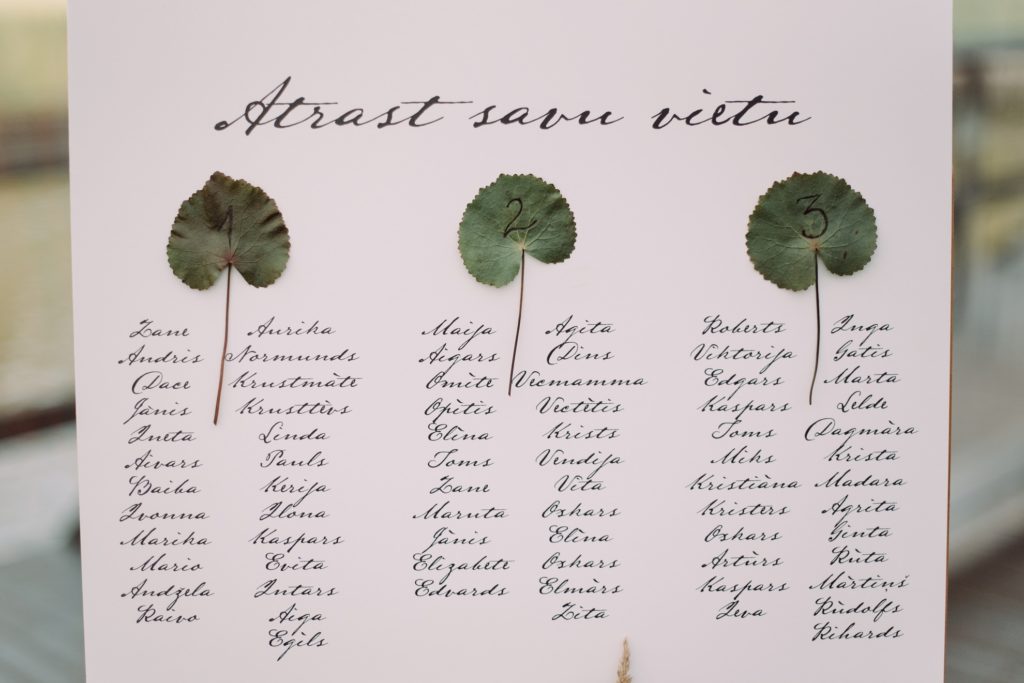 Atrast savu vietu
1
Zane
Andris
Dace
Jànis
Ineta
Aivars
Baiba
Ivonna
Marika
Mario
Andzela
Raivo
Aurika
Normunds
Krustmàte
Krusttèvs
Linda
Pauls
Kerija
Ilona
Kaspars
Evita
Intars
Aiga
Egìls
2
Maija
Aigars
Omìte
Opìtis
Elìna
Toms
Zane
Maruta
Jànis
Elizabete
Edvards
Agita
Dins
Vecmamma
Vectètis
Krists
Vendija
Vita
Oskars
Elìna
Oskars
Elmàrs
Zita
3
Roberts
Viktorija
Edgars
Kaspars
Toms
Miks
Kristiàna
Kristers
Oskars
Artùrs
Kaspars
Ieva
Inga
Gatis
Marta
Lelde
Dagmàra
Krista
Madara
Agrita
Ginta
Rùta
Màrtiņš
Rùdolfs
Rihards